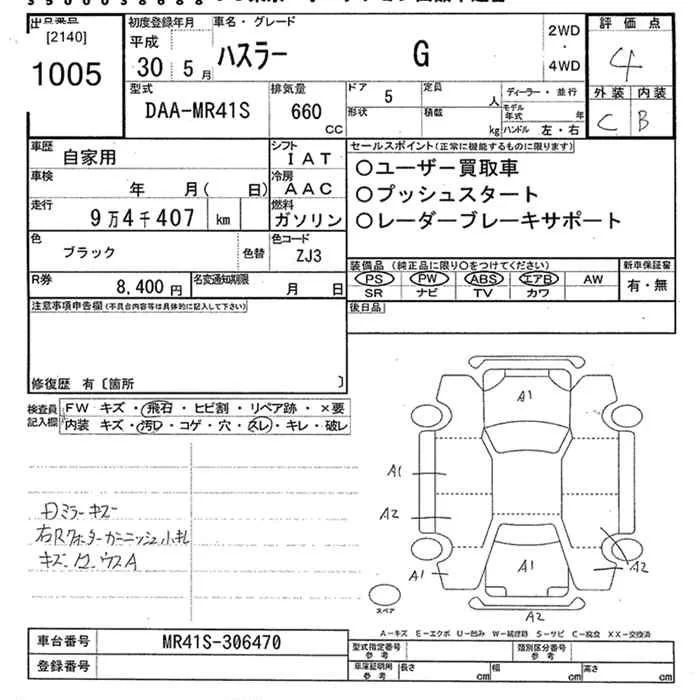 出品番号
[2140]
1005
初度登録年月
平成
30 5 月
車名・グレード
ハスラー G
2WD
・
4WD
評価点
4
外装 内装
C B
型式
DAA-MR41S
排気量
660
CC
ドア 5
定員 人
形状
積載 kg
ディーラー・並行
モデル年式 年
ハンドル 左・右
車歴
自家用
シフト
IAT
車検
年 月( 日)
冷房
AAC
走行
9万4千407 km
燃料
ガソリン
色
ブラック
色替
色コード
ZJ3
R券
8,400 円
名変通知期限
月 日
セールスポイント(正常に機能するものに限ります)
○ユーザー買取車
○プッシュスタート
○レーダーブレーキサポート
装備品 (純正品に限り○をつけてください)
PS PW ABS エアB AW
SR ナビ TV カワ
新車保証書
有・無
後日品
注意事項申告欄(不具合内容等は具体的に記入して下さい)
修復歴 有〔箇所 〕
検査員記入欄
FW キズ・飛石・ヒビ割・リペア跡・×要
内装 キズ・汚レ・コゲ・穴・スレ・キレ・破レ
右Rクォーターガーニッシュ小キレ
A1
A1
A2
A1
A1
A2
A2
スペア
A-キズ E-エクボ U-凹み W-補修跡 S-サビ C-腐食 XX-交換済
車台番号
MR41S-306470
登録番号
型式指定番号
参考
類別区分番号
参考
車庫証明用
参考
長さ cm
幅 cm
高さ cm